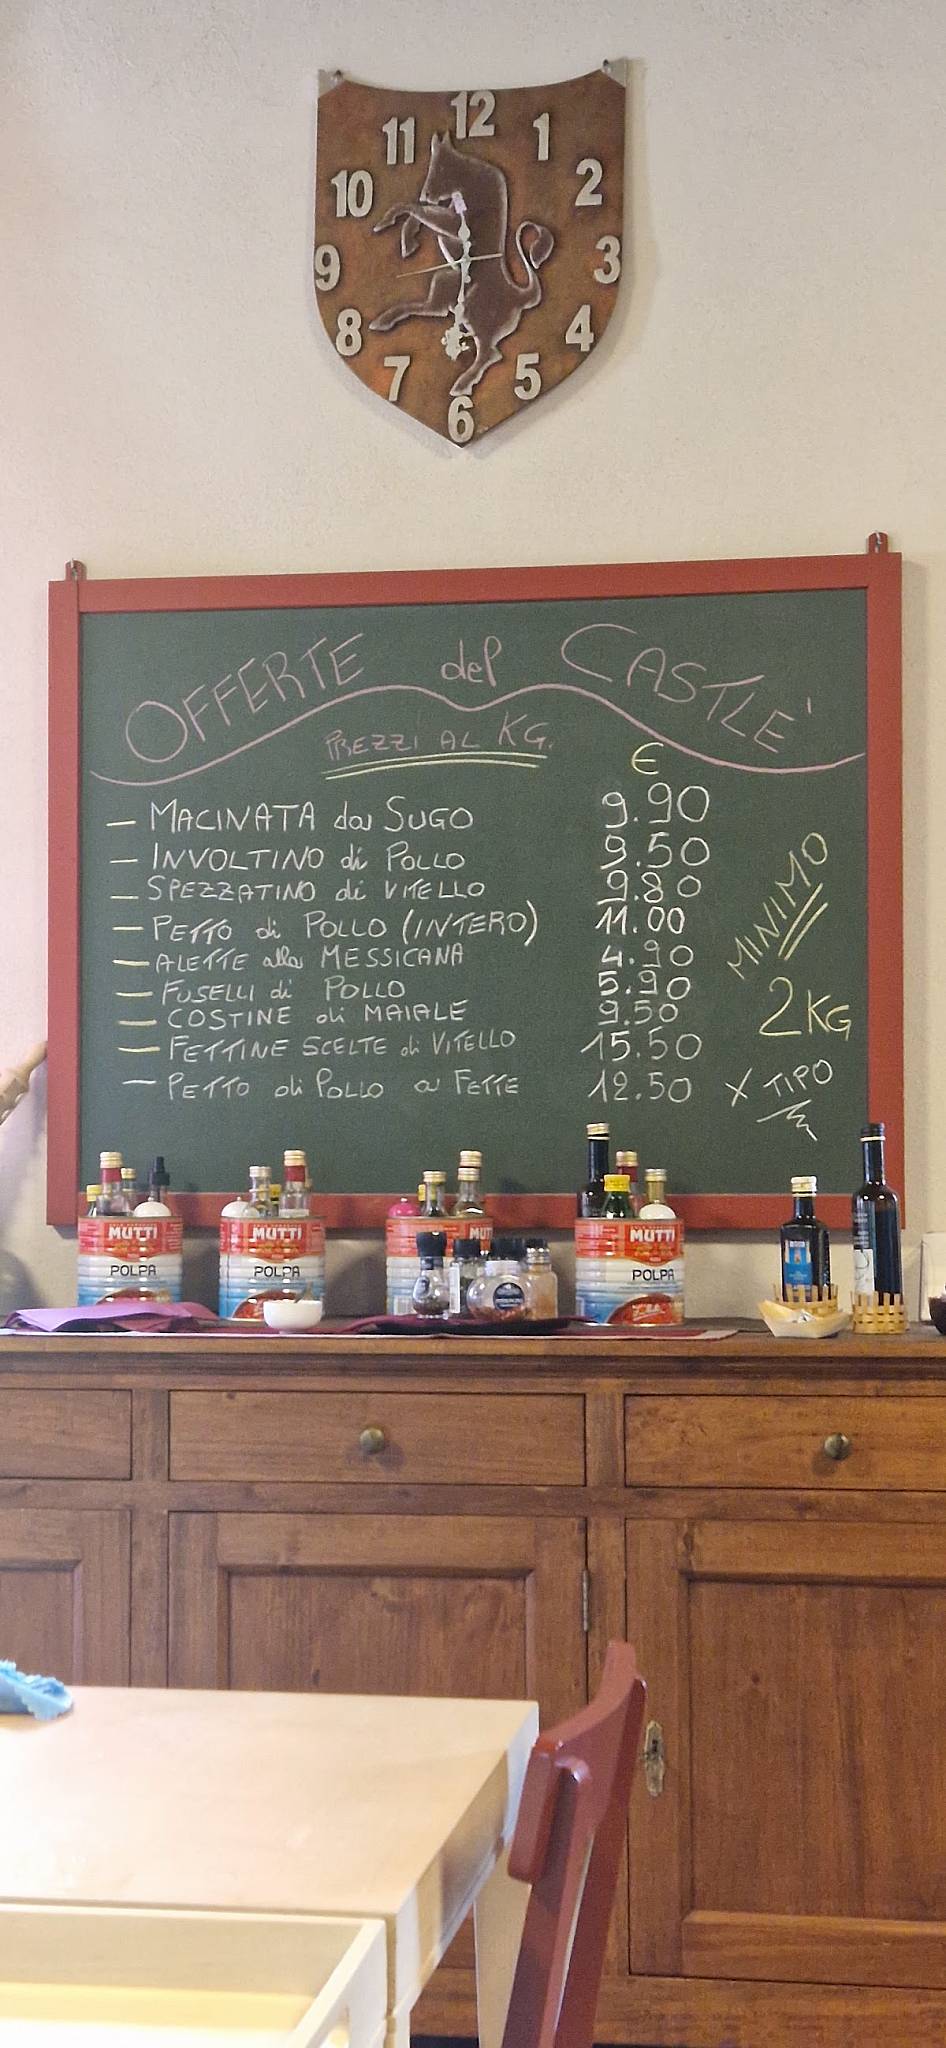 12
11 1
10 2
9 3
8 4
7 5
6
OFFERTE del CASTLE'
PREZZI AL KG.
€
— MACINATA da SUGO 9.90
— INVOLTINO di POLLO 9.50
— SPEZZATINO di VITELLO 9.80
— PETTO di POLLO (INTERO) 11.00
— ALETTE alla MESSICANA 4.90
— FUSELLI di POLLO 5.90
— COSTINE di MAIALE 9.50
— FETTINE SCELTE di VITELLO 15.50
— PETTO di POLLO a FETTE 12.50
MINIMO
2 KG
X TIPO
MUTTI
POLPA
MUTTI
POLPA
MUTTI
MUTTI
POLPA